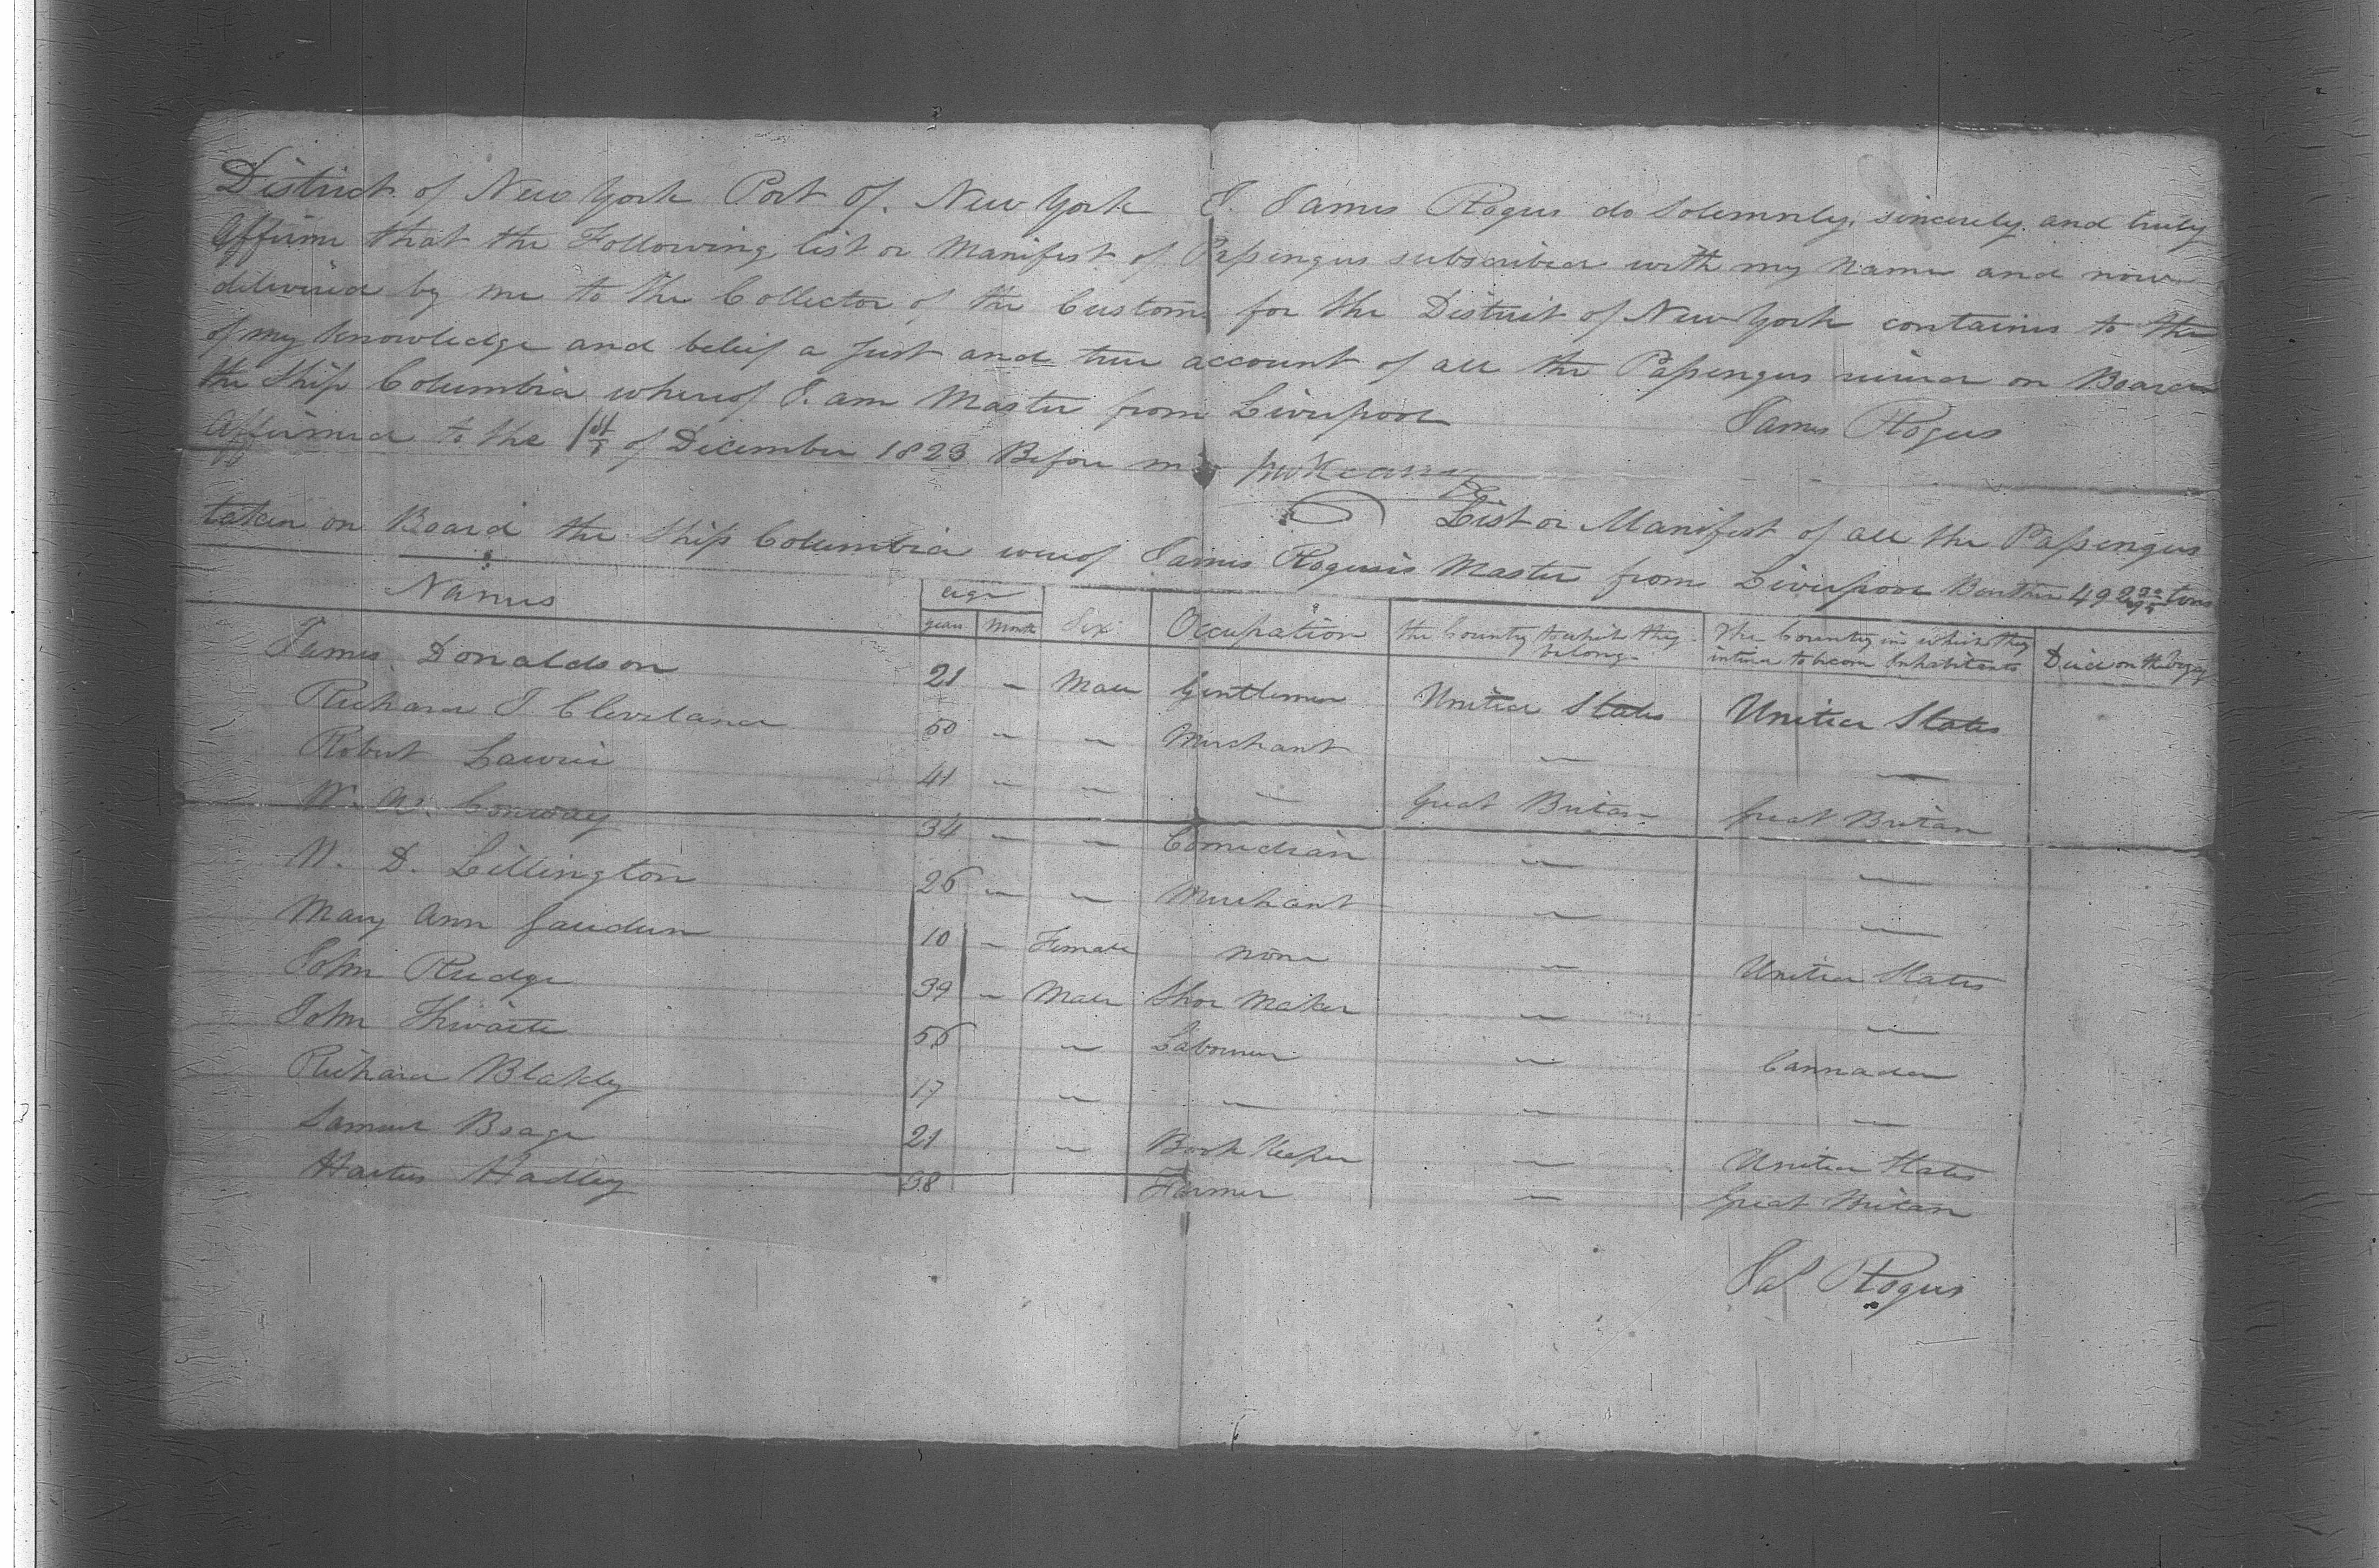 District of New York Port of New York I. James Rogers do Solemnly, sincerely and truly
Affirm that the Following list or Manifest of Passengers subscribed with my name and now
delivered by me to the Collector of the Customs for the District of New York contains to the
of my knowledge and belief a just and true account of all the Passengers received on Board
the Ship Columbia whereof I am Master from Liverpool James Rogers
Affirmed to the 1st of December 1823 Before me
List or Manifest of all the Passengers
taken on Board the Ship Columbia wereof James Rogers is Master from Liverpool Burthen 492 tons
Names age years Month Sex Occupation the Country to which they belong The Country in which they intend to become Inhabitants Died on the Voyage
James Donaldson 21 " Male Gentlemen United States United States
Richard J. Cleveland 50 " " Merchant " "
Robert Lawrie 41 " " " Great Britan Great Britan
W. A. Conway 34 " " Comedian " "
N. D. Lillington 26 " " Merchant " "
Mary Ann 10 " Female none " United States
John Rudge 39 " Male Shoe Maker " "
John Thwaite 56 " Labourer " Cannada
Richard Blakley 17 " " " "
Samuel 21 " Book Keeper " United States
Hadley 38 Farmer " Great Britan
Jas Rogers